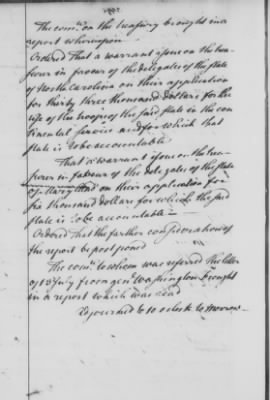 The com.ee on the treasury brought in a
report whereupon
Ordered That a warrant issue on the trea
surer in favour of the delegates of the state
of North Carolina on their application
for thirty three thousand dollars for the
use of the troops of the said state in the con
tinental service and for which that
state is to be accountable
That a warrant issue on the trea
surer in favour of the delegates of the state
of Maryland on their application for
six thousand dollars for which the said
state is to be accountable
Ordered that the farther consideration of
the report be postponed
The com.ee to whom was referred the letter
of 15 July from gen.l Washington brought
in a report which was read
Adjourned to 10 o Clock to Morrow